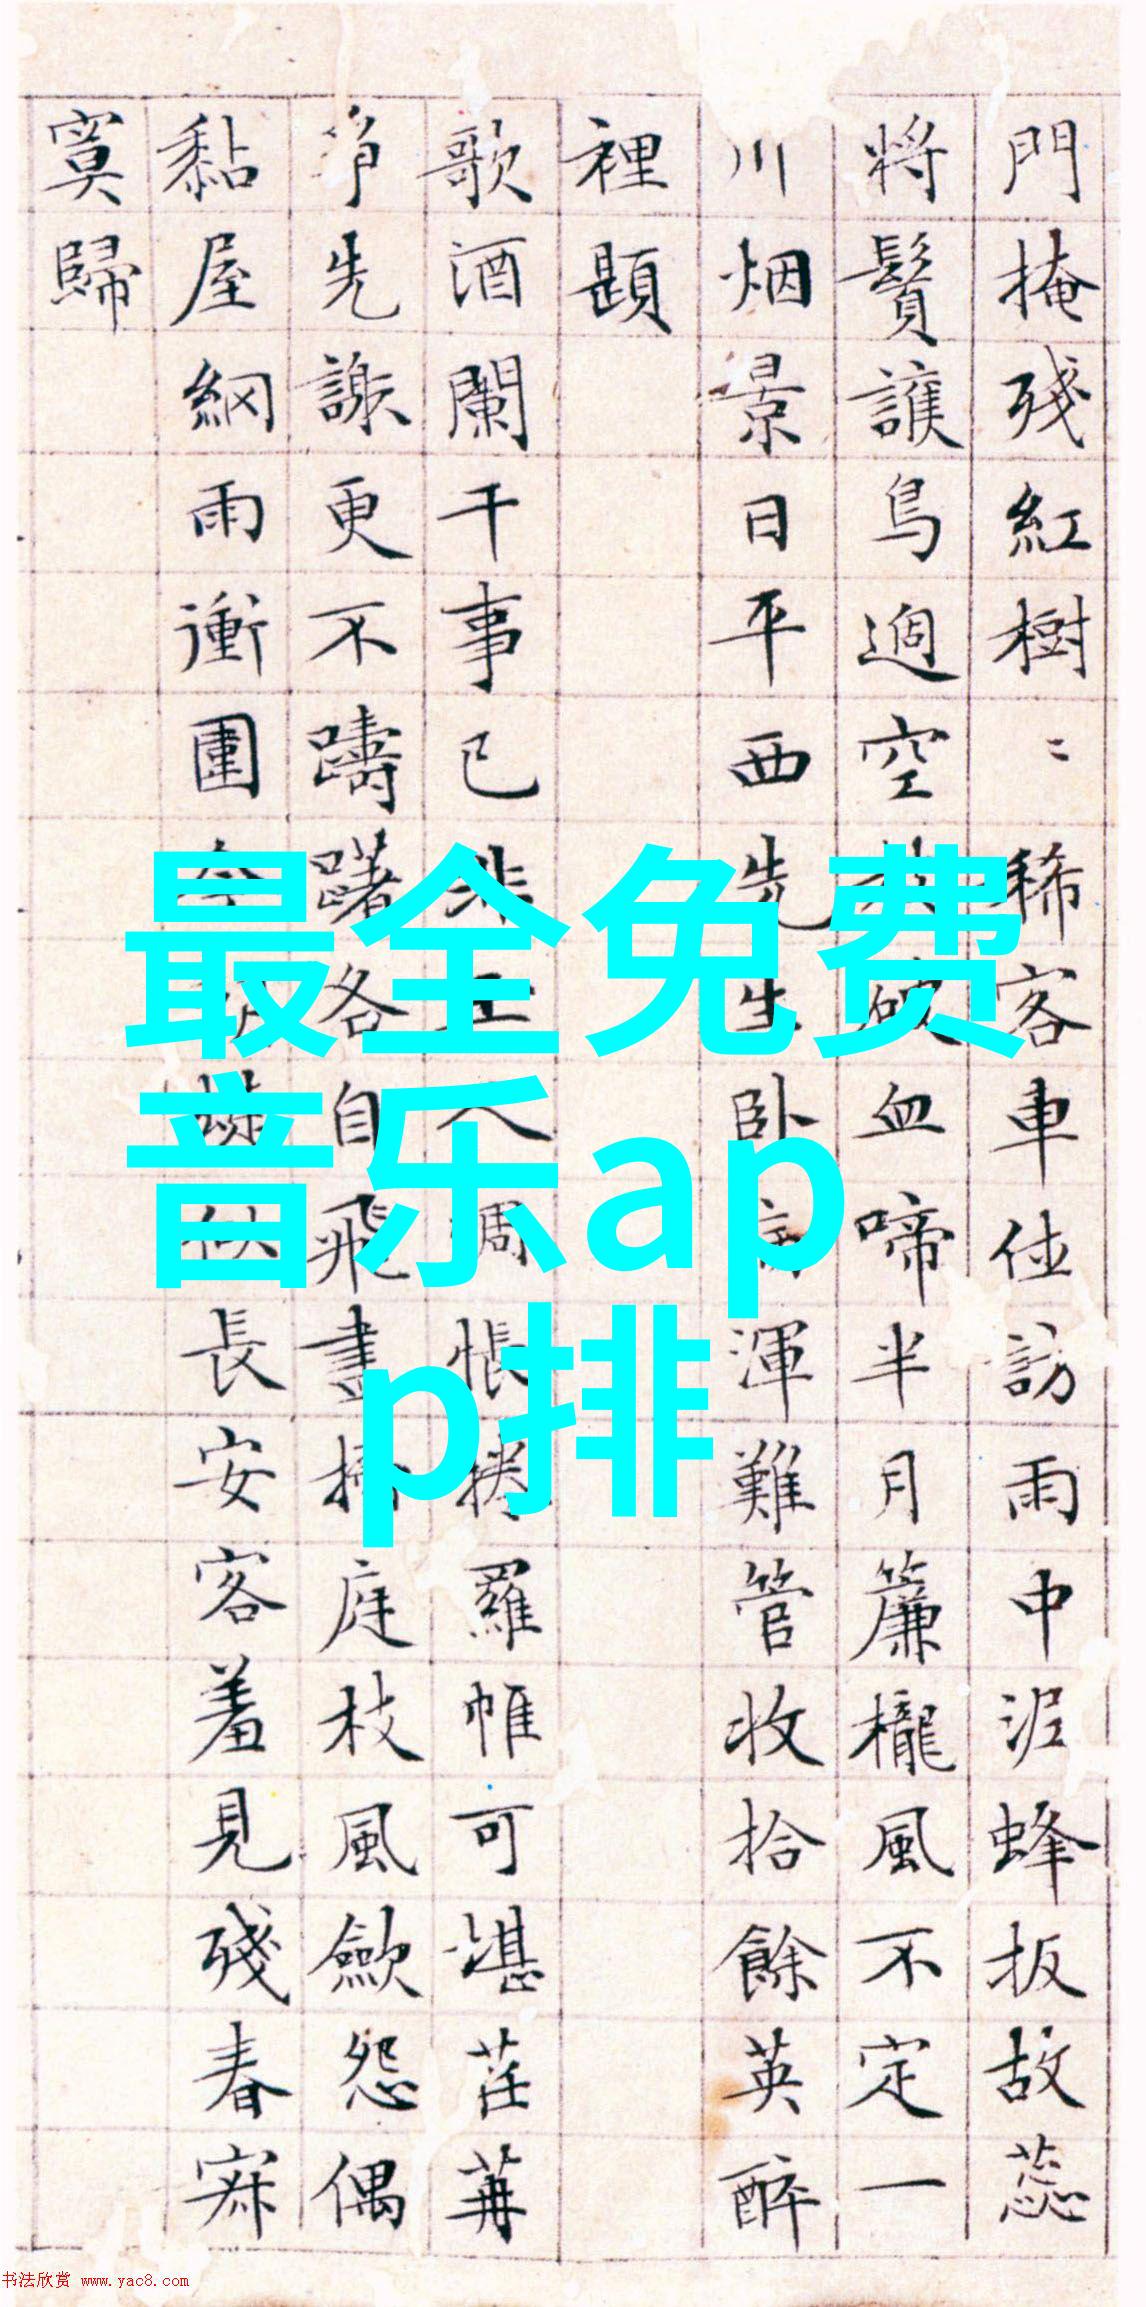 門掩殘紅樹〻稀客車住訪雨中泥蜂扳故蕊
將鬢護鳥過空血啼半月簾櫳風不定一
川烟景日平西先生卧渾難管收拾餘英醉
裡題
歌酒闌干事已非人惆悵捲羅帷可堪莊蕚
爭先謝更不躊躇各自飛盡掃庭枝風歛怨偶
黏屋網雨衝圍長安客羞見殘春寂
寞歸
最全免费
音乐ap
p排
书法欣赏 www.yac8.com